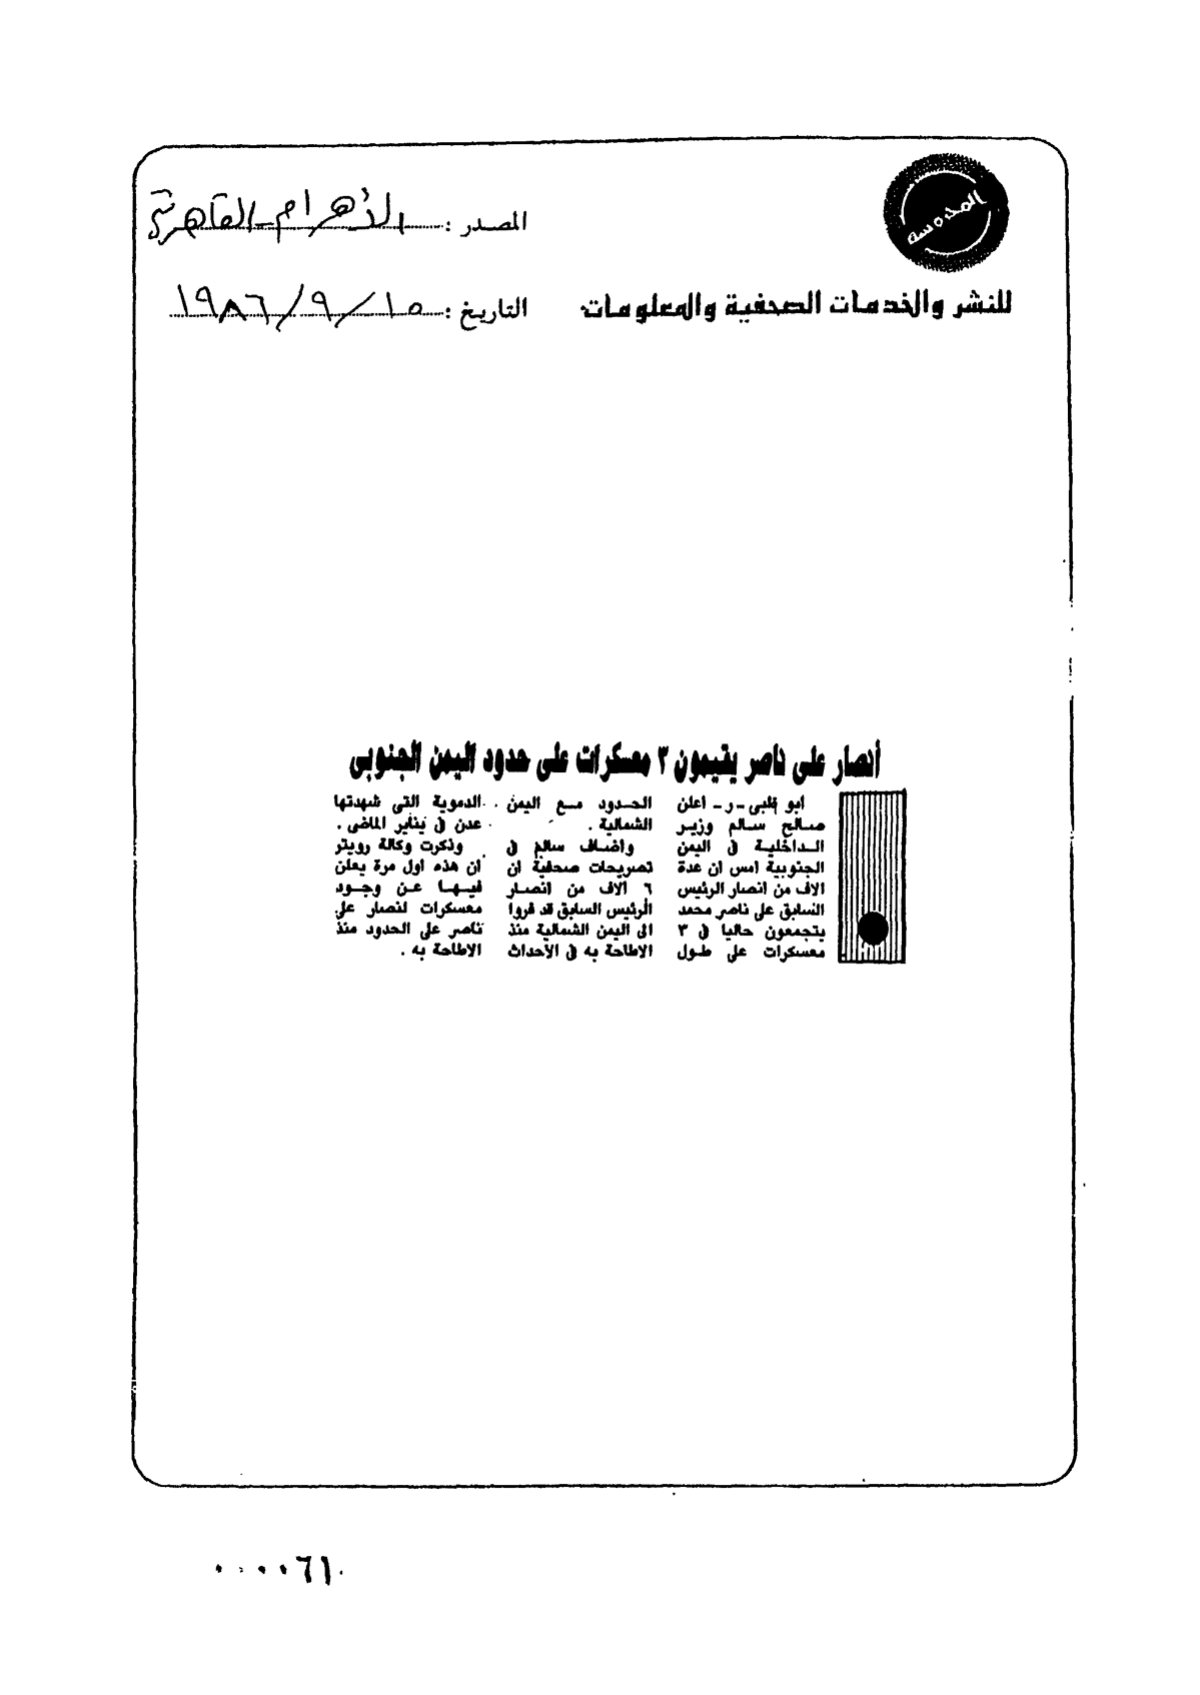 المحروسة
للنشر والخدمات الصحفية والمعلومات
المصدر : الأهرام - القاهرية
التاريخ : ١٥ / ٩ / ١٩٨٦
أنصار على ناصر يقيمون ٣ معسكرات على حدود اليمن الجنوبى
ابو ظبى - ر - اعلن
صالح سالم وزير
الداخلية فى اليمن
الجنوبية امس ان عدة
الاف من انصار الرئيس
السابق على ناصر محمد
يتجمعون حاليا فى ٣
معسكرات على طول
الحدود مع اليمن
الشمالية .
واضاف سالم فى
تصريحات صحفية ان
٦ الاف من انصار
الرئيس السابق قد فروا
الى اليمن الشمالية منذ
الاطاحة به فى الأحداث
الدموية التى شهدتها
عدن فى يناير الماضى .
وذكرت وكالة رويتر
ان هذه اول مرة يعلن
فيها عن وجود
معسكرات لانصار على
ناصر على الحدود منذ
الاطاحة به .
٠٠٠٠٦١